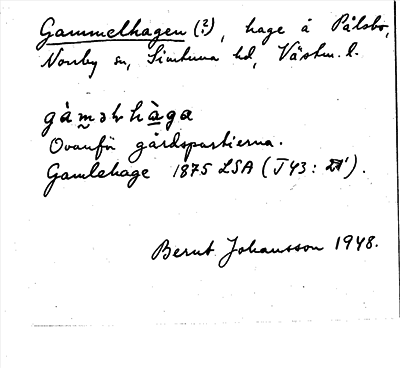 Gammelhagen (?), hage å Pålsbo,
Norrby sn, Simtuna hd, Västm. l.
gàməlhàga
Ovanför gårdspartierna.
Gamlehage 1875 LSA (T43:
Bernt Johansson 1948.